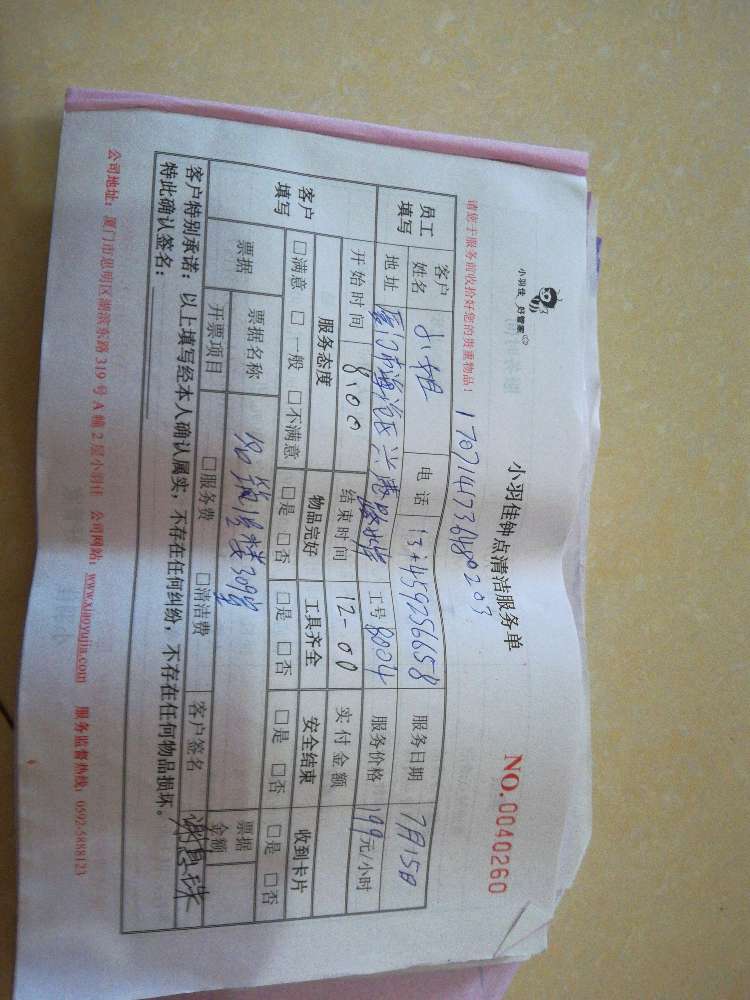 小羽佳 好管家
小羽佳钟点清洁服务单
NO. 0040260
请您于服务前收拾好您的贵重物品！
员工填写 客户姓名 小姐 电话 服务日期 7月15日
地址 厦门市海沧区兴港路 工号 8004 服务价格 199元/小时
开始时间 8:00 结束时间 12-00 实付金额
客户填写 服务态度 物品完好 工具齐全 安全结束 收到卡片
□满意 □一般 □不满意 □是 □否 □是 □否 □是 □否 □是 □否
票据 票据名称 309室 票据金额
开票项目 □服务费 □清洁费 客户签名
客户特别承诺：以上填写经本人确认属实，不存在任何纠纷，不存在任何物品损坏。
特此确认签名：
公司地址：厦门市思明区湖滨东路319号A幢2层小羽佳 公司网站：www.xiaoyujia.com 服务监督热线：0592-5888123